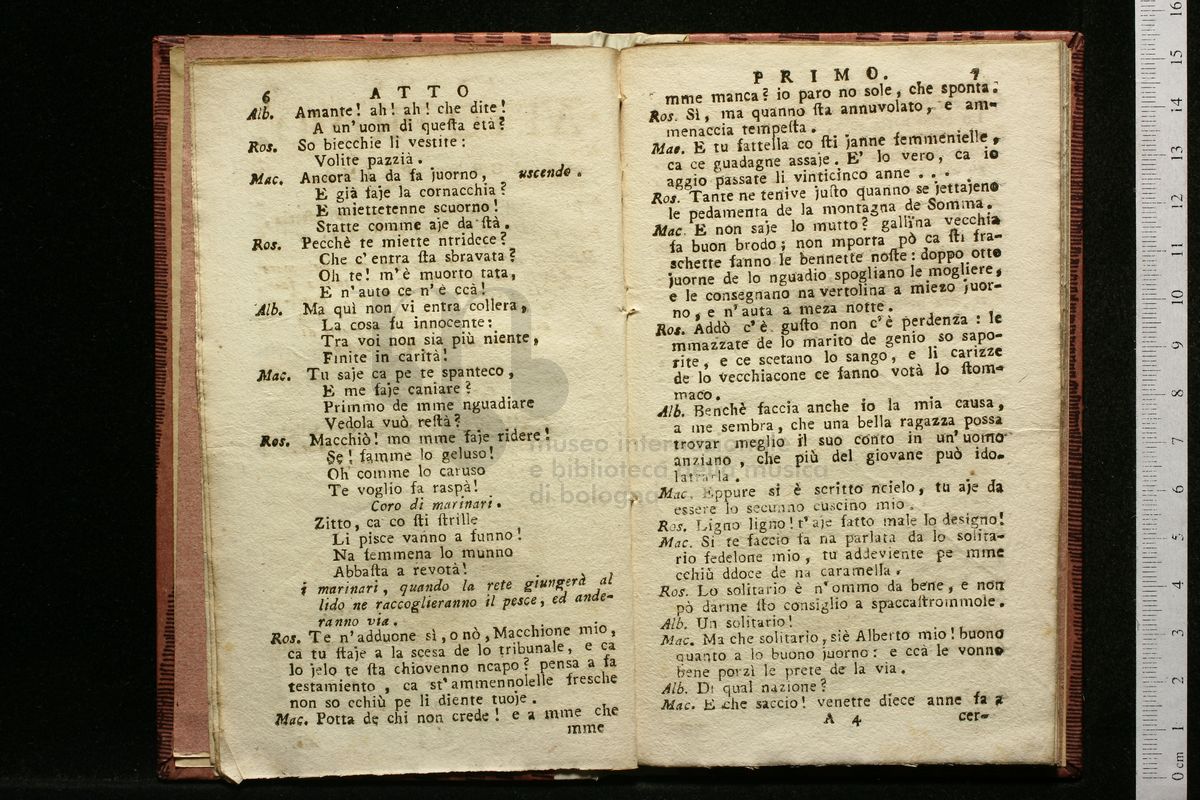 6 ATTO
Alb. Amante! ah! ah! che dite!
A un'uom di questa età?
Ros. So biecchie li vestite:
Volite pazzià.
Mac. Ancora ha da fa juorno, uscendo.
E già faje la cornacchia?
E miettetenne scuorno!
Statte comme aje da stà.
Ros. Pecchè te miette ntridece?
Che c'entra sta sbravata?
Oh te! m'è muorto tata,
E n'auto ce n'è ccà!
Alb. Ma quì non vi entra collera,
La cosa fu innocente:
Tra voi non sia più niente,
Finite in carità!
Mac. Tu saje ca pe te spanteco,
E me faje caniare?
Primmo de mme nguadiare
Vedola vuò restà?
Ros. Macchiò! mo mme faje ridere!
Se! famme lo geluso!
Oh comme lo caruso
Te voglio fa raspà!
Coro di marinari.
Zitto, ca co sti strille
Li pisce vanno a funno!
Na femmena lo munno
Abbasta a revotà!
i marinari, quando la rete giungerà al
lido ne raccoglieranno il pesce, ed ande-
ranno via.
Ros. Te n'adduone sì, o nò, Macchione mio,
ca tu staje a la scesa de lo tribunale, e ca
lo jelo te sta chiovenno ncapo? pensa a fa
testamiento, ca st'ammennolelle fresche
non so cchiù pe li diente tuoje.
Mac. Potta de chi non crede! e a mme che
mme
PRIMO. 7
mme manca? io paro no sole, che sponta.
Ros. Sì, ma quanno sta annuvolato, e am-
menaccia tempesta.
Mac. E tu fattella co sti janne femmenielle,
ca ce guadagne assaje. E' lo vero, ca io
aggio passate li vinticinco anne . . .
Ros. Tante ne tenive justo quanno se jettajeno
le pedamenta de la montagna de Somma.
Mac. E non saje lo mutto? gallina vecchia
fa buon brodo; non mporta pò ca sti fra-
schette fanno le bennette noste: doppo otto
juorne de lo nguadio spogliano le mogliere,
e le consegnano na vertolina a miezo juor-
no, e n'auta a meza notte.
Ros. Addò c'è gusto non c'è perdenza: le
mmazzate de lo marito de genio so sapo-
rite, e ce scetano lo sango, e li carizze
de lo vecchiacone ce fanno votà lo stom-
maco.
Alb. Benchè faccia anche io la mia causa,
a me sembra, che una bella ragazza possa
trovar meglio il suo conto in un'uomo
anziano, che più del giovane può ido-
latrarla.
Mac. Eppure si è scritto ncielo, tu aje da
essere lo secunno cuscino mio.
Ros. Ligno ligno! t'aje fatto male lo designo!
Mac. Si te faccio fa na parlata da lo solita-
rio fedelone mio, tu addeviente pe mme
cchiù ddoce de na caramella.
Ros. Lo solitario è n'ommo da bene, e non
pò darme sto consiglio a spaccastrommole.
Alb. Un solitario!
Mac. Ma che solitario, siè Alberto mio! buono
quanto a lo buono juorno: e ccà le vonno
bene porzì le prete de la via.
Alb. Di qual nazione?
Mac. E che saccio! venette diece anne fa a
A 4 cer-
museo internazionale
e biblioteca della musica
di bologna
0 cm 1 2 3 4 5 6 7 8 9 10 11 12 13 14 15 16